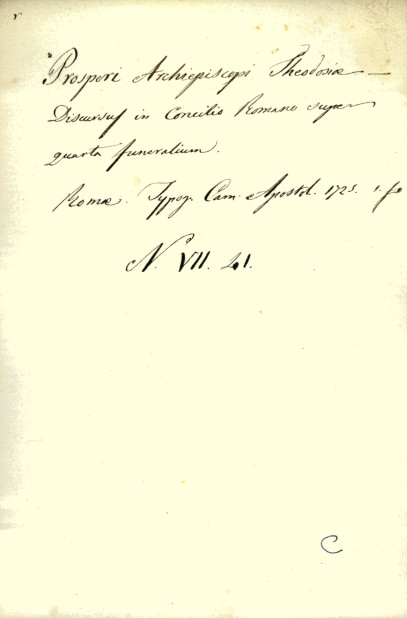 r
Prosperi Archiepiscopi Theodosiæ —
Discursus in Concilio Romano super
quarta funeralium.
Romæ. Typog. Cam. Apostol. 1725. 1. fo
N. VII. 41.
C